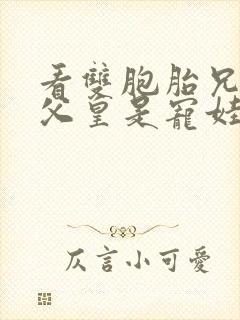 看雙胞胎兄
父皇是寵娃
仄言小可愛